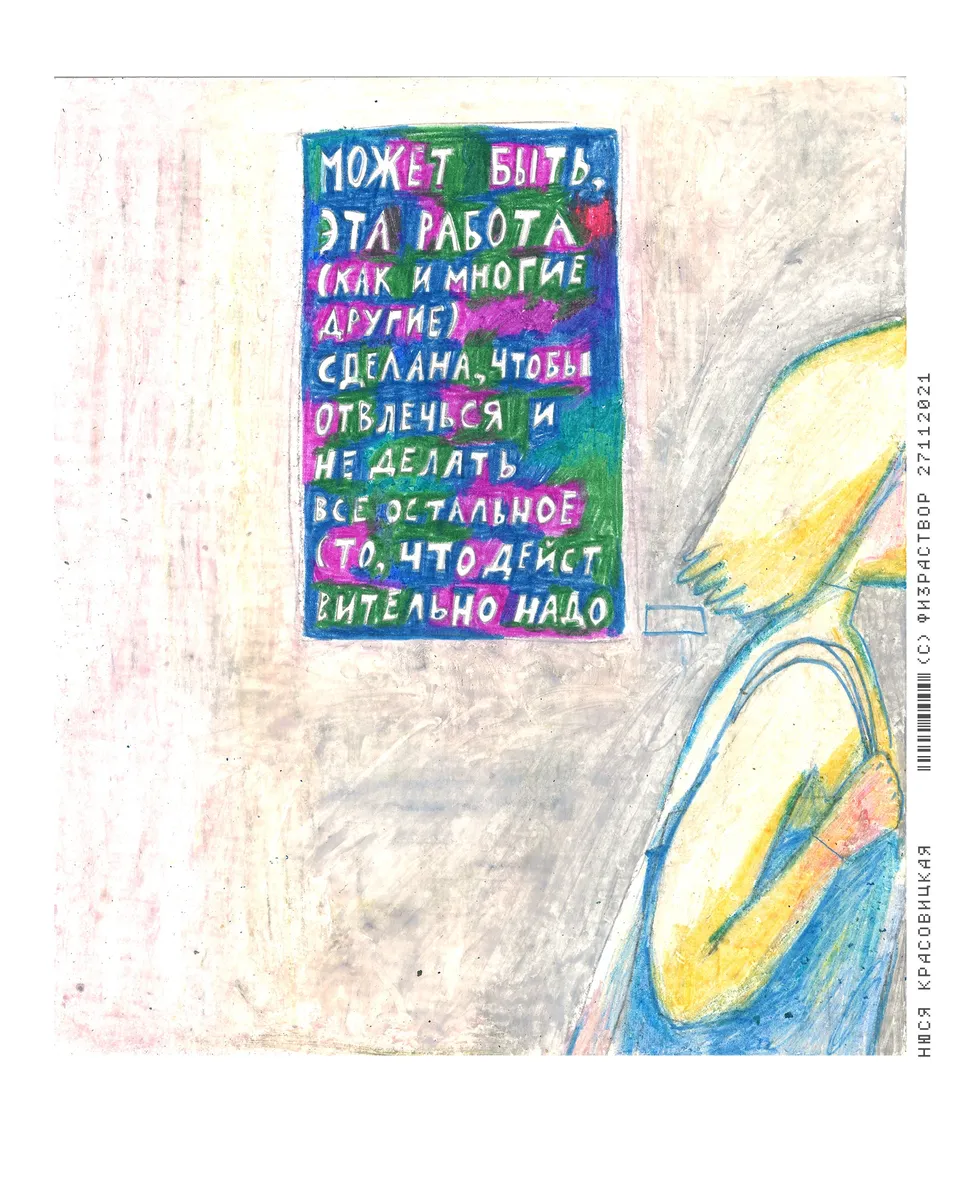 МОЖЕТ БЫТЬ,
ЭТА РАБОТА
(КАК И МНОГИЕ
ДРУГИЕ)
СДЕЛАНА, ЧТОБЫ
ОТВЛЕЧЬСЯ И
НЕ ДЕЛАТЬ
ВСЕ ОСТАЛЬНОЕ
(ТО, ЧТО ДЕЙСТ
ВИТЕЛЬНО НАДО
НЮСЯ КРАСОВИЦКАЯ (C) ФИЗРАСТВОР 27112021